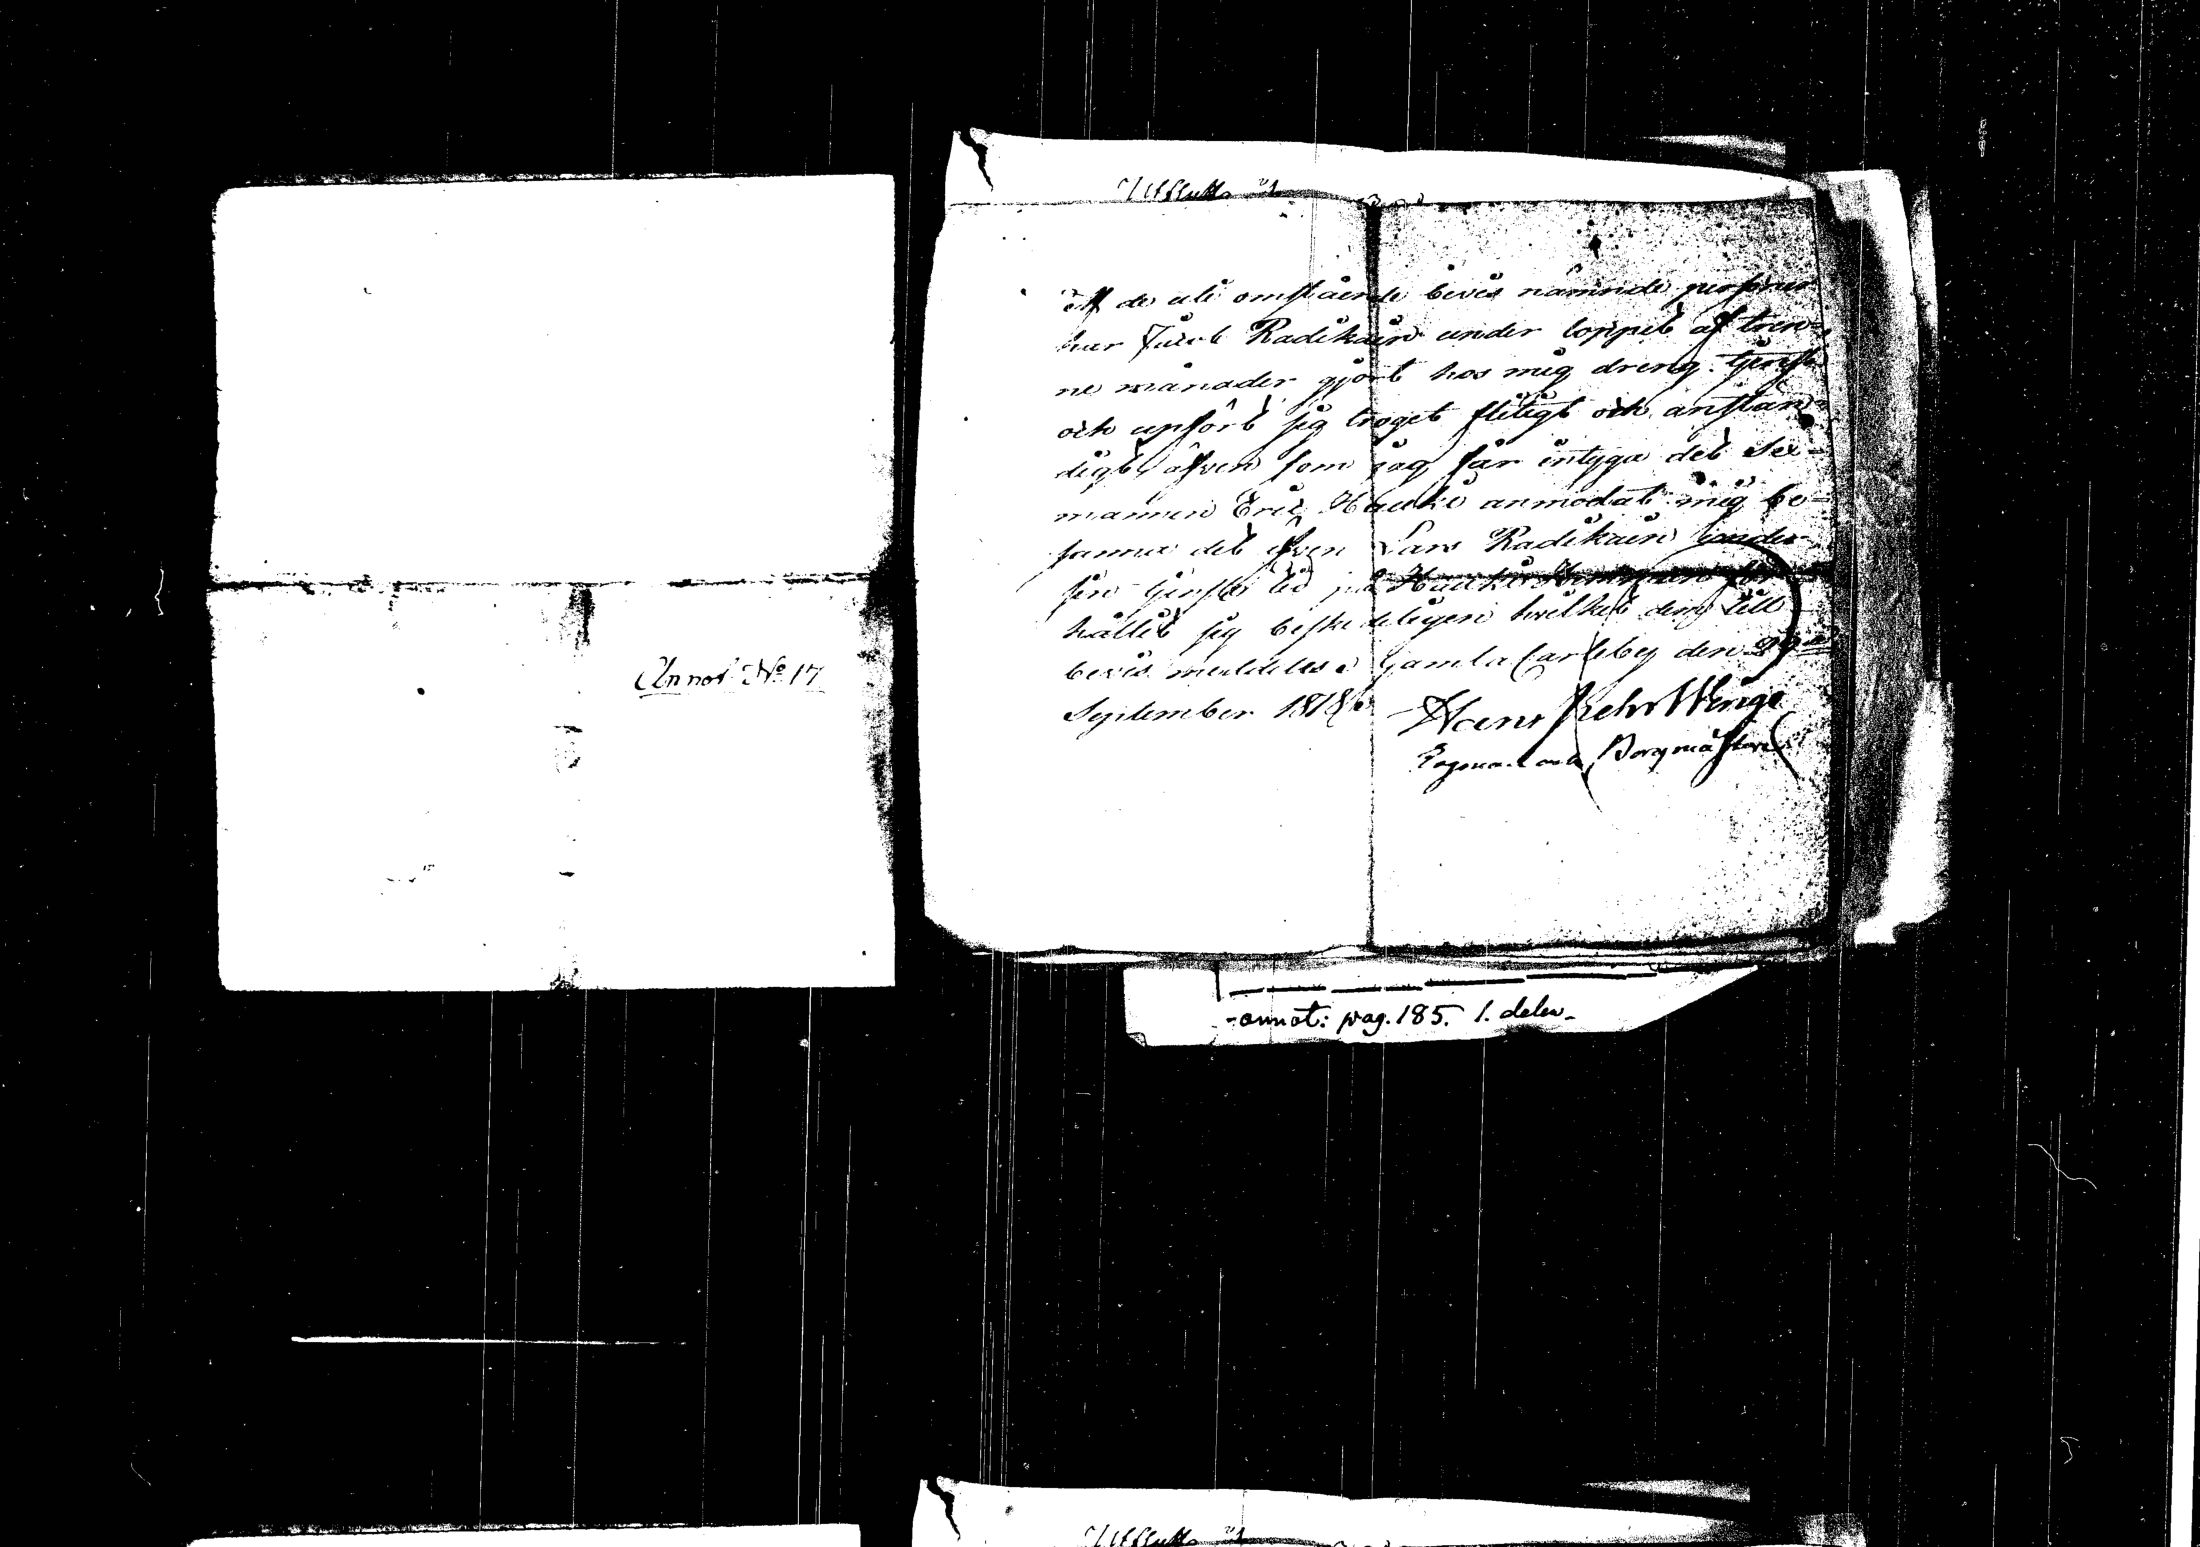 Annot No 17
Af de uti omstående bevis nämnde personer
har Jacob Radikain under loppet af tren-
ne månader gjort hos mig dreng tjenst
och upfört sig troget flitigt och anstän-
digt, äfven som jag får intyga det Sex-
mannen Eric Hauki anmodat mig be-
sanna det äfven Lars Radikain under
sin tjenste tid på Hauki Hemman för-
hållit sig beskedeligen hvilket dem till
bevis meddeles. Gamla Carleby den
September 1818
Hans
och Borgmästare
annot: pag. 185. 1. delen